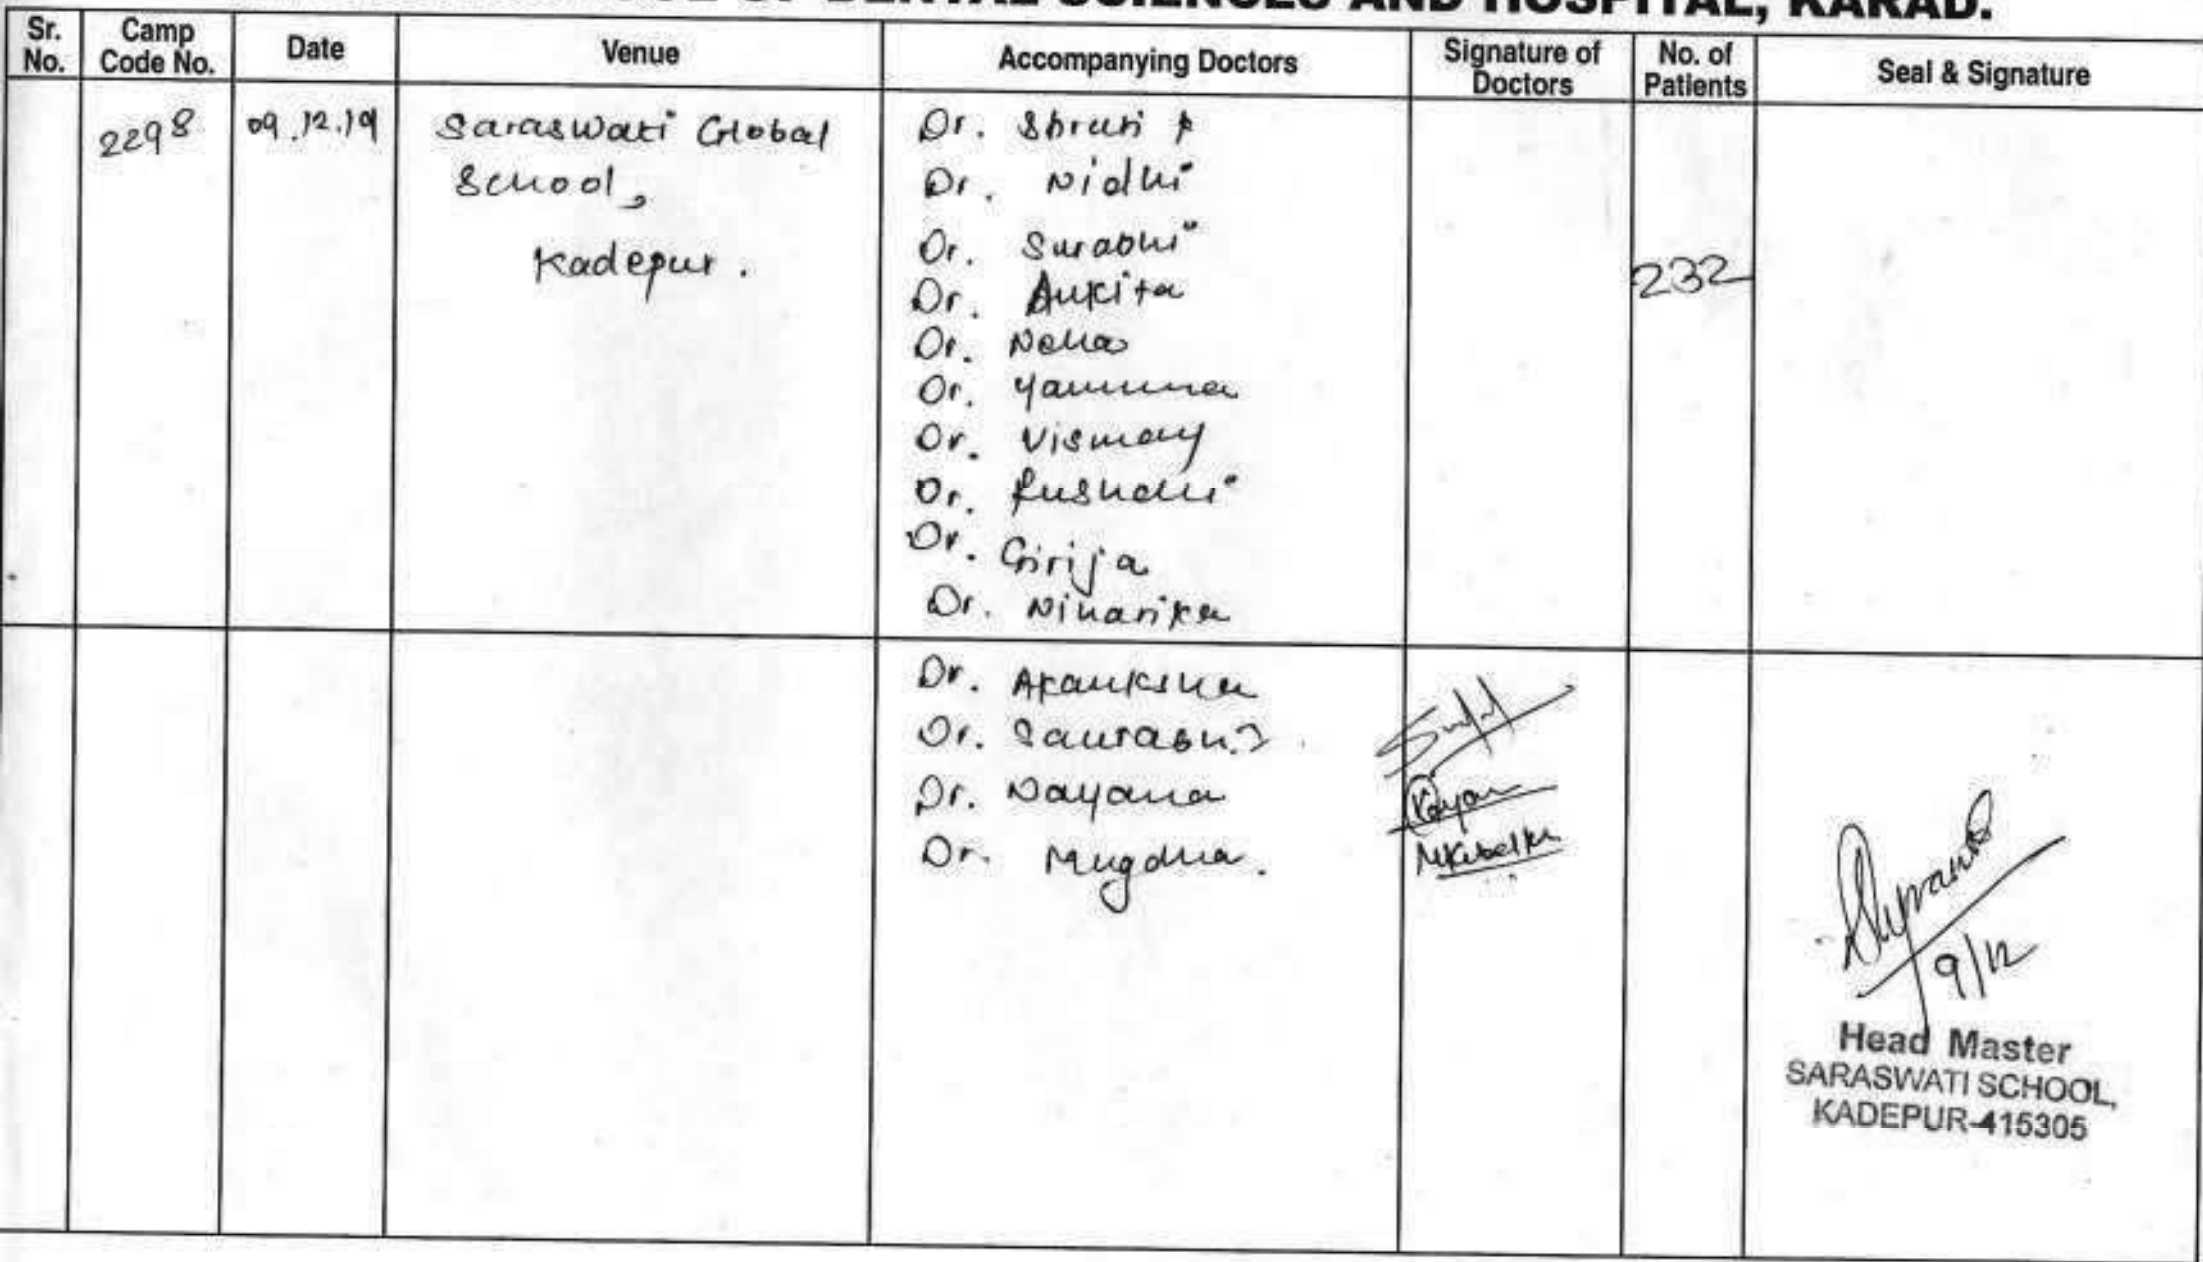 OF DENTAL SCIENCES AND HOSPITAL, KARAD.
Sr. No. Camp Code No. Date Venue Accompanying Doctors Signature of Doctors No. of Patients Seal & Signature
2298 09.12.19 Saraswati Global Dr. Shruti P
School, Dr. Nidhi
Dr. Surabhi
Kadepur. 232
Dr. Ankita
Dr. Neha
Dr. Yamuna
Dr. Vismay
Dr. Rushdhi
Dr. Girija
Dr. Niharika
Dr. Akanksha
Dr. Saurabh.J
Dr. Nayana
Dr. Mugdha.
9/12
Head Master
SARASWATI SCHOOL,
KADEPUR-415305